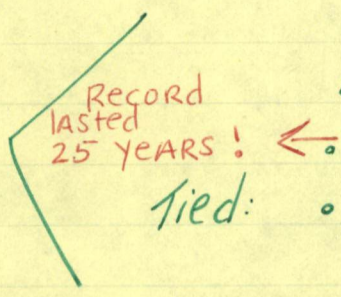 Record
lasted
25 years !
Tied: